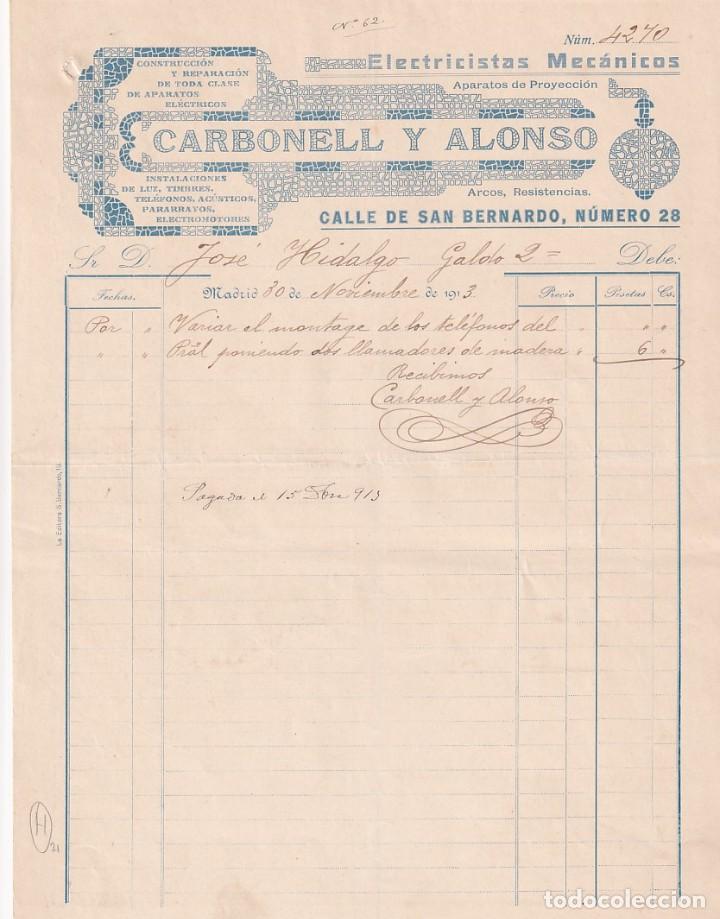 Nº 62.
Núm. 4270
Electricistas Mecánicos
CONSTRUCCIÓN
Y REPARACIÓN
DE TODA CLASE
DE APARATOS
ELÉCTRICOS
Aparatos de Proyección
CARBONELL Y ALONSO
INSTALACIONES
DE LUZ, TIMBRES,
TELÉFONOS, ACÚSTICOS,
PARARRAYOS,
ELECTROMOTORES
Arcos, Resistencias.
CALLE DE SAN BERNARDO, NÚMERO 28
Sr. D. José Hidalgo Galdo 2 = Debe:
Fechas. Madrid 30 de Noviembre de 1913. Precio Pesetas Cs.
Por " Variar el montage de los teléfonos del " " "
" " Pral poniendo dos llamadores de madera " 6 "
Recibimos
Carbonell y Alonso
Pagada el 15 913
La Editora S. Bernardo, 19.
H
21
todocoleccion